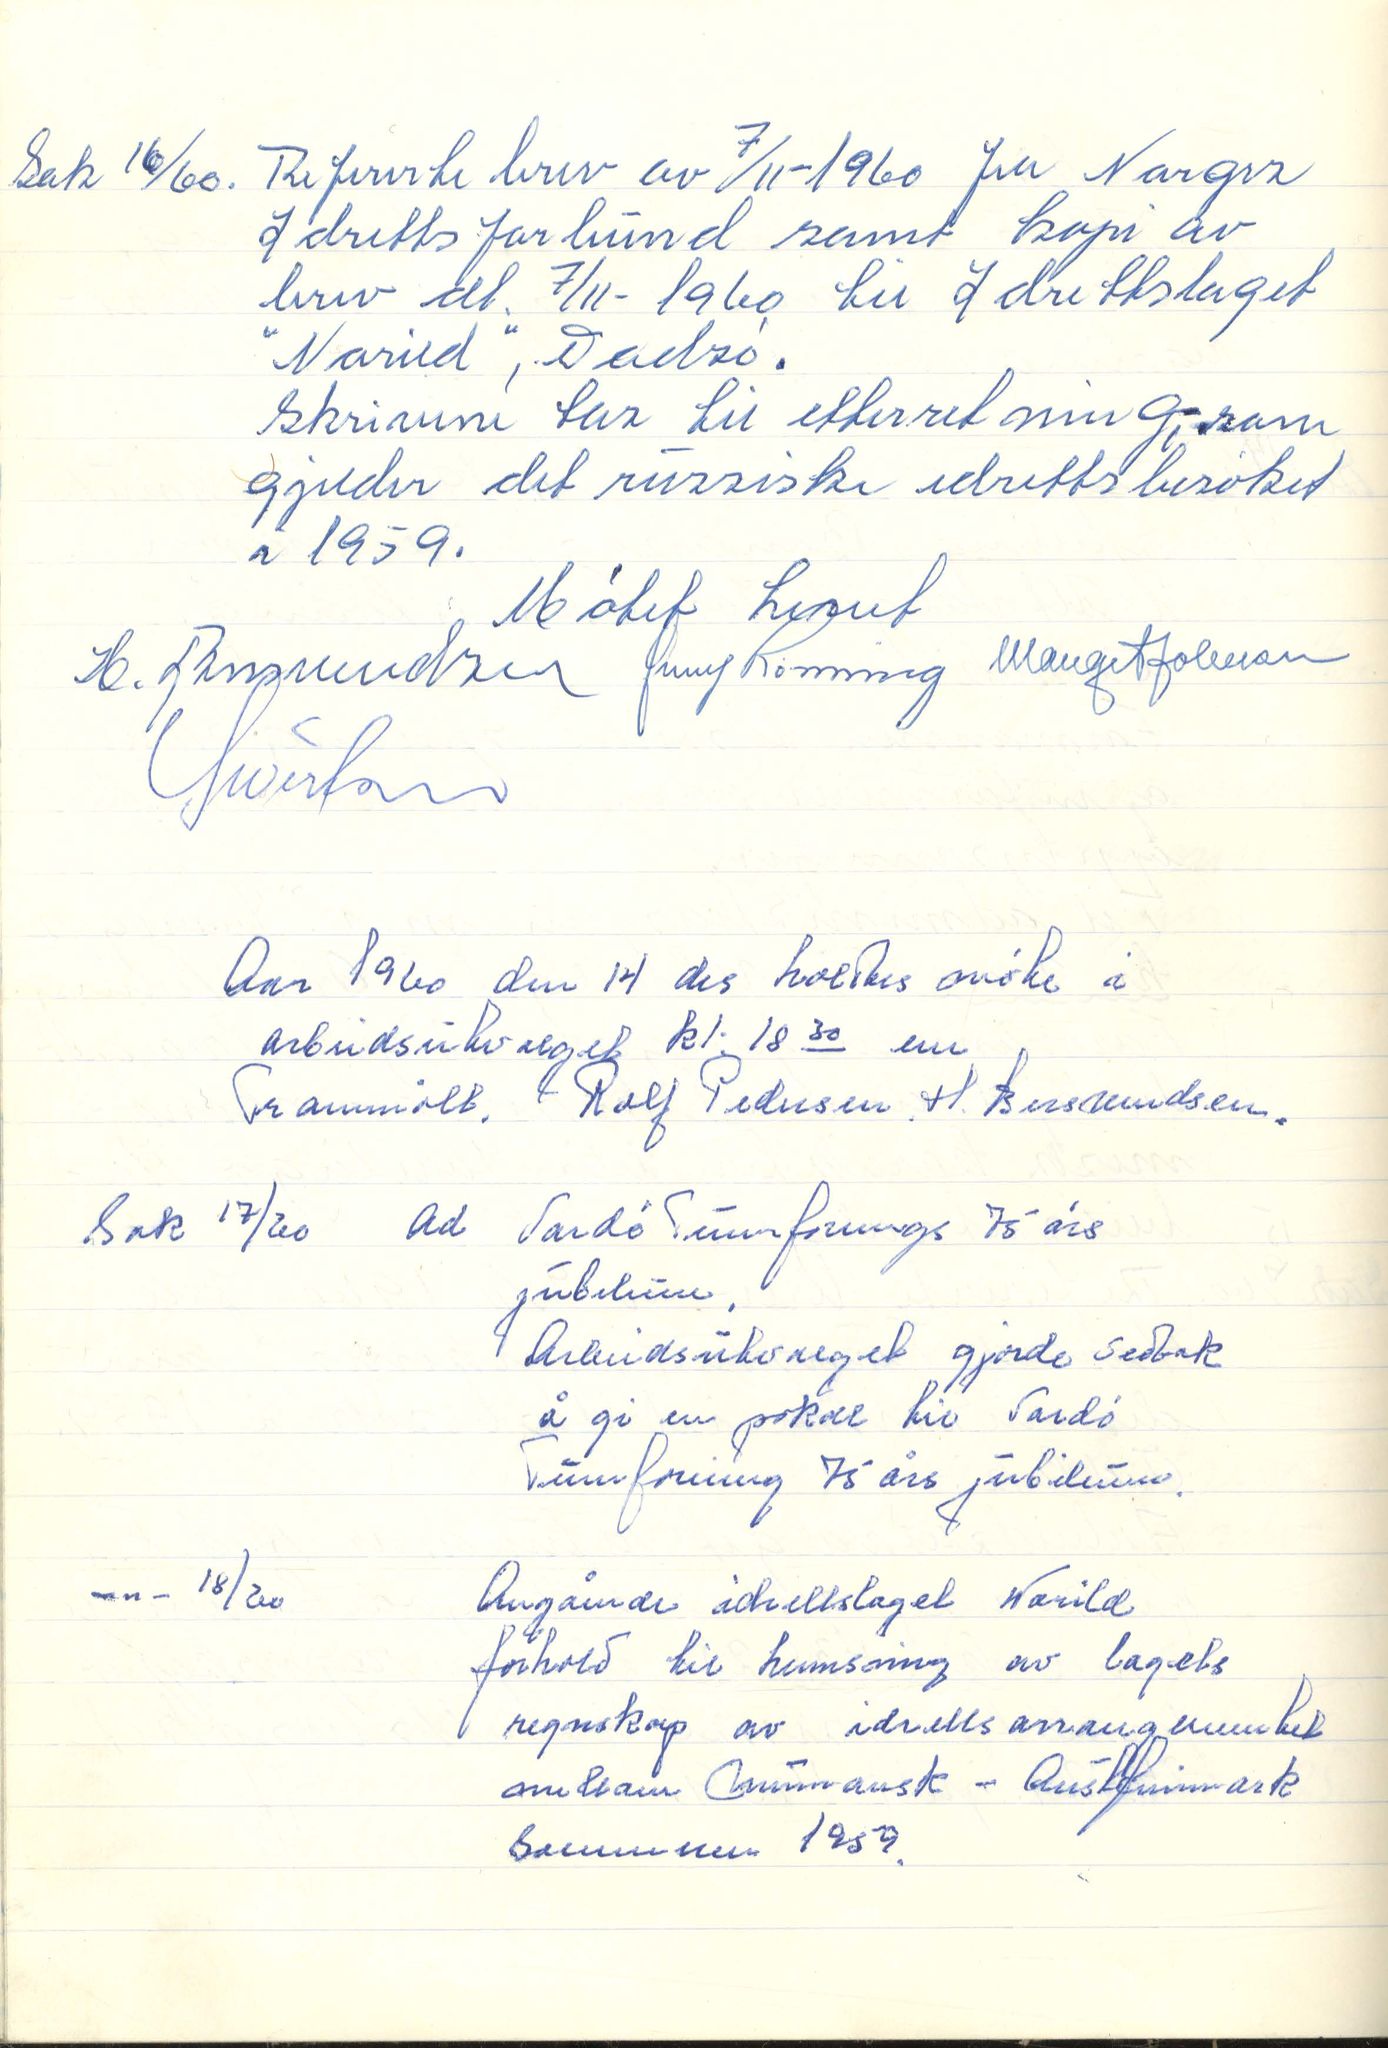 Sak 16/60. Refererte brev av 7/11-1960 fra Norges
Idrettsforbund samt kopi av
brev dt. 7/11-1960 til Idrettslaget
"Norild", Vadsö.
Skrivene tas til etterretning, som
gjelder det russiske idrettsbesöket
i 1959.
Mötet hevet
Margit Johnsen
Aar 1960 den 14 des holdtes möte i
arbeidsutvalget kl. 18 30 em
Frammött. Rolf Pedersen. H.
Sak 17/60 Ad Vardö Turnforenings 75 års
jubileum.
Arbeidsutvalget gjorde vedtak
å gi en pokal til Vardö
Turnforening 75 års jubileum.
-"- 18/60 Angående idrettslaget Norild
forhold til innsending av lagets
regnskap av idrettsarrangementet
mellom Murmansk - Austfinnmark
Sommeren 1959.